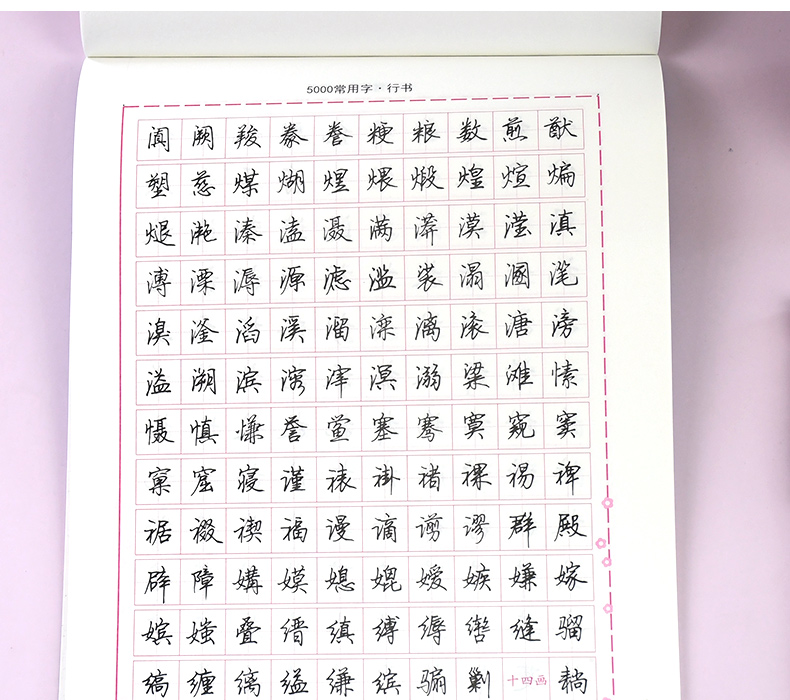 5000常用字·行书
阗阙羧豢誊粳粮数煎猷
塑慈煤煳煜煨煅煌煊煸
煺滟溱溘滠满漭漠滢滇
溥溧溽源滤滥裟溻溷滗
溴滏滔溪溜滦漓滚溏滂
溢溯滨溶滓溟溺粱滩愫
慑慎慊誉鲎塞骞寞窥窦
窠窟寝谨裱褂褚裸裼裨
裾裰禊福谩谪谫谬群殿
辟障媾嫫媳媲嫒嫉嫌嫁
嫔媸叠缙缜缚缛辔缝骝
缟缠缡缢缣缤骟剿十四画耥